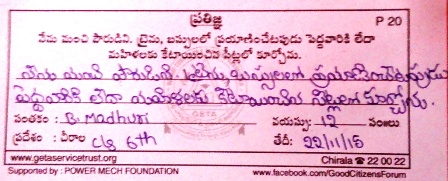 ప్రతిజ్ఞ
P 20
నేను మంచి పౌరుడిని. రైలు, బస్సులలో ప్రయాణించేటపుడు పెద్దవారికి లేదా
మహిళలకు కేటాయించిన సీట్లలో కూర్చోను.
నేను మంచి పౌరుడిని రైలు, బస్సులలో ప్రయాణించేటపుడు
పెద్దవారికి లేదా మహిళలకు కేటాయించిన సీట్లలో కూర్చోను.
సంతకం : B. Madhuri వయస్సు: 12 సంఒలు
ప్రదేశం : చీరాల c/s 6th తేదీ: 22/11/15
www.getaservicetrust.org Chirala ☎ 22 00 22
Supported by : POWER MECH FOUNDATION www.facebook.com/GoodCitizensForum